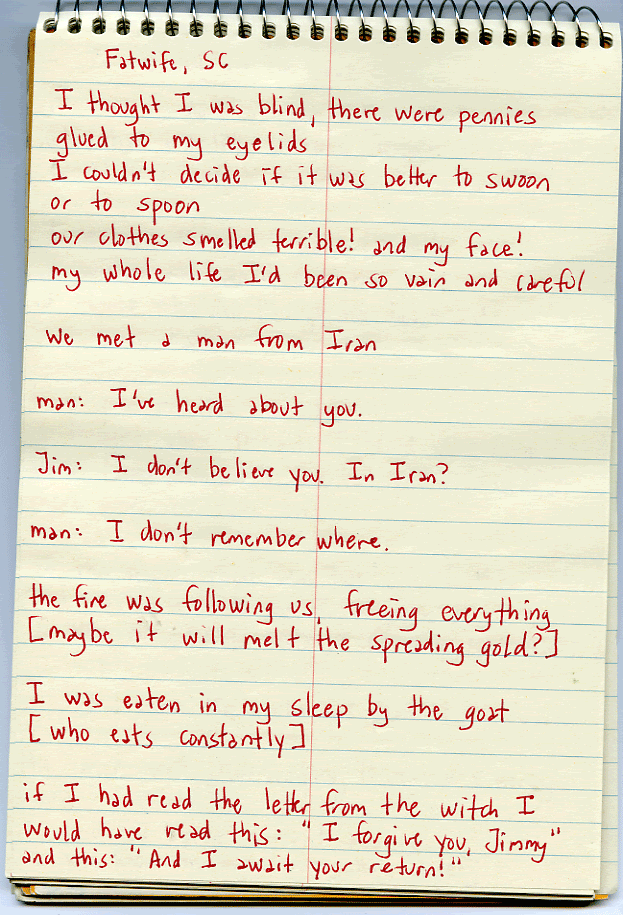 Fatwife, SC
I thought I was blind, there were pennies
glued to my eyelids
I couldn't decide if it was better to swoon
or to spoon
our clothes smelled terrible! and my face!
my whole life I'd been so vain and careful
We met a man from Iran
man: I've heard about you.
Jim: I don't believe you. In Iran?
man: I don't remember where.
the fire was following us, freeing everything
[maybe it will melt the spreading gold?]
I was eaten in my sleep by the goat
[who eats constantly]
if I had read the letter from the witch I
would have read this: "I forgive you, Jimmy"
and this: "And I await your return!"